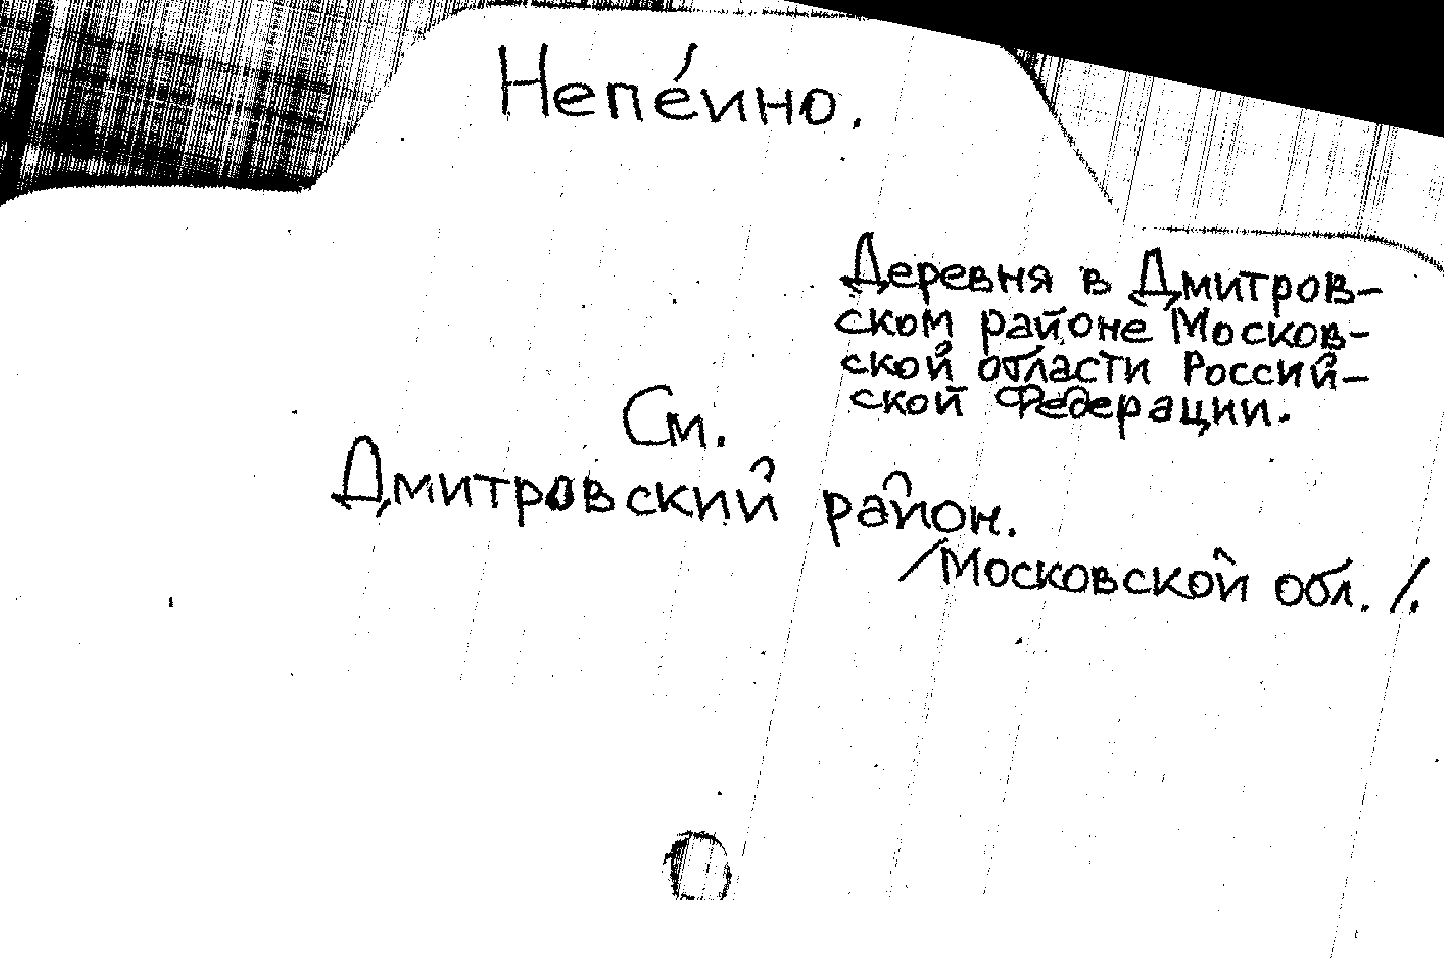 Непе́ино.
Деревня в Дмитров-
ском районе Москов-
ской области Россий-
ской Федерации.
См.
Дмитровский район.
/Московской обл./.